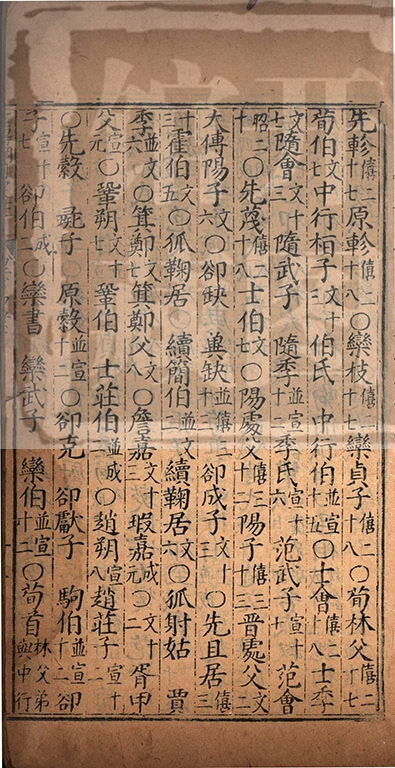 先軫僖二十七原軫僖二十八○欒枝僖二十七欒貞子僖二十八○荀林父僖二十七
荀伯文七中行桓子文十三伯氏中行伯並宣十五○士會僖二十八士季文七
隨會文十三隨武子隨季並宣十二季氏宣十六范武子宣十七范會
昭二十○先蔑僖二十八士伯文七○陽處父僖三十二陽子僖三十三晋處父文二
大傅陽子文六○郤缺兾缺並僖三十三郤成子文十三○先且居僖三
十三霍伯文五○狐鞫居續簡伯並文二續鞫居文六○狐射姑賈
季並文六○箕鄭文七箕鄭父文八○詹嘉文十三瑕嘉成元○胥甲文十二
父宣元○鞏朔文十七鞏伯士莊伯並成二○趙朔宣八趙莊子宣十二
○先縠彘子原縠並宣十二○郤克郤獻子駒伯並宣十二郤
子宣十七郤伯成二○欒書欒武子欒伯並宣十二○荀首林父弟中行